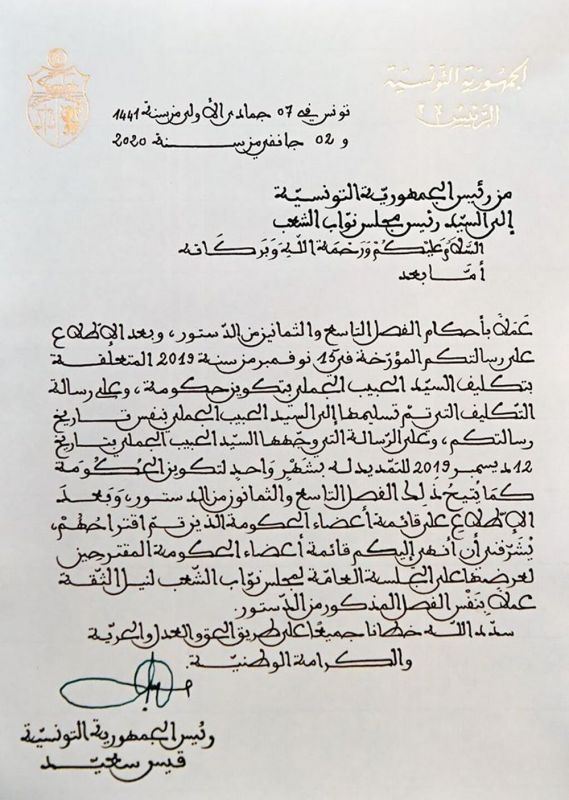 الجمهورية التونسيّة
الرّئيس
تونس في 07 جمادى الأولى من سنة 1441
و 02 جانفي من سنة 2020
من رئيس الجمهوريّة التونسيّة
إلى السيّد رئيس مجلس نوّاب الشعب
السَّلامُ عَلَيْكُمْ وَرَحْمَةُ اللّهِ وَبَرَكَاتُهُ
أمَّا بعد
عَمَلًا بأحكام الفصل التاسع والثمانين من الدّستور، وبعد الإطّلاع
على رسالتكم المؤرّخة في 15 نوفمبر من سنة 2019 المتعلّقة
بتكليف السيّد الحبيب الجملي بتكوين حكومة، وعلى رسالة
التّكليف التي تمّ تسليمها إلى السيد الحبيب الجملي بنفس تاريخ
رسالتكم، وعلى الرّسالة التي وجّهها السيّد الحبيب الجملي بتاريخ
12 ديسمبر 2019 للتمديد له بشَهْرٍ وَاحِدٍ لتكوين الحُكُومَة
كمَا يُتيحُ ذَلِكَ الفصل التاسع والثمانون من الدستور، وَبَعْدَ
الإِطّلاع على قائمة أعضاء الحكومة الذين تمّ اقتراحُهُمْ،
يُشَرّفني أن أنهي إليكم قائمة أعضاء الحكومة المقترحين
لعرضها على الجلسة العامّة لمجلس نوّاب الشّعب لنيل الثّقة
عملًا بِنَفْسِ الفصل المذكور من الدّستور.
سدّد اللّه خطانا جميعًا على طريق الحقّ والعدل والحريّة
والكرامة الوطنيّة.
رئيس الجمهورية التونسيّة
قيس سعيّد